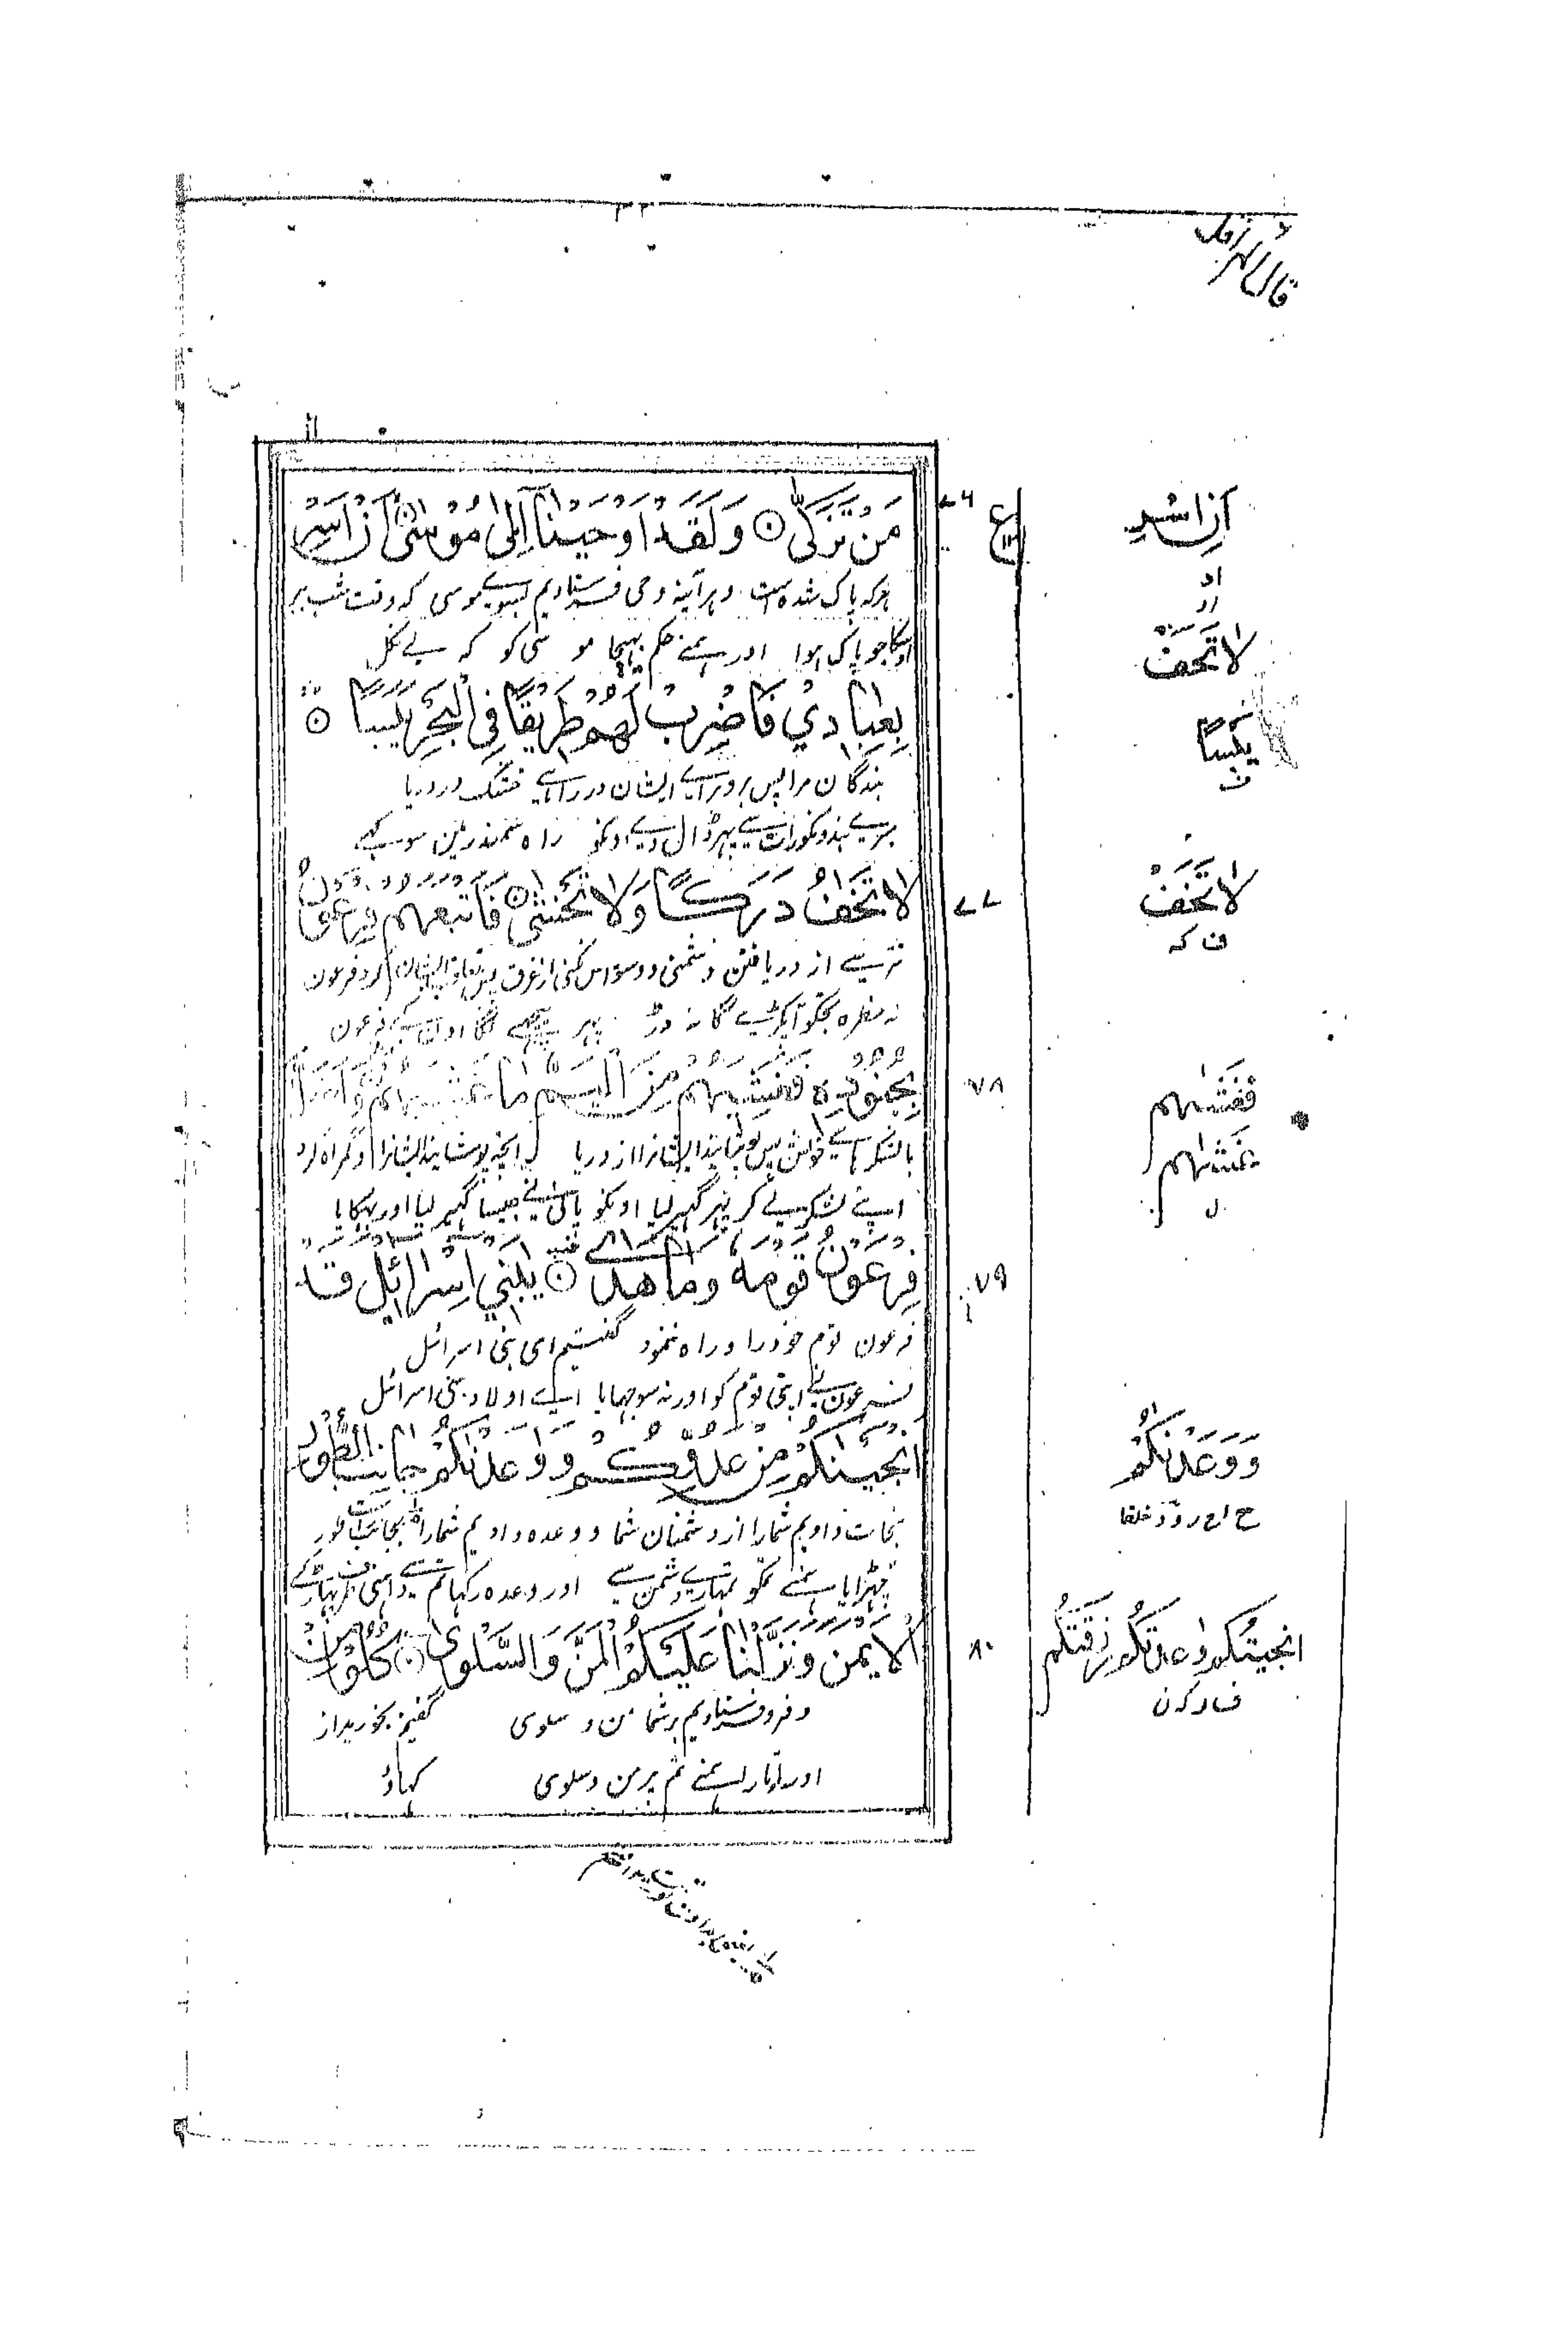 قال الم اقل
مَنْ تَزَكّٰى ۝ وَلَقَدْ اَوْحَيْنَآ اِلٰى مُوْسٰٓى اَنْ اَسْرِ
هرکه پاک شده است و هر آئینه وحی فرستادیم بسوے موسی که وقت شب ببر
اوسکا جو پاک ہوا اور ہمنے حکم بہیجا موسی کو کہ لے نکل
بِعِبَادِيْ فَاضْرِبْ لَهُمْ طَرِيْقًا فِي الْبَحْرِ يَبَسًا ۝
بندگان مرا پس برو براے ایشان در راهے خشک در دریا
میرے بندونکو رات سے پہر ڈال دے اونکو راہ سمندر میں سوکہے
لَا تَخٰفُ دَرَكًا وَّلَا تَخْشٰى ۝ فَاَتْبَعَهُمْ فِرْعَوْنُ
نترسی از دریافتن دشمنی و وسواس نکنی از غرق پس تعاقب ایشان کرد فرعون
نہ خطرہ تجکو آپکڑنے کا نہ ڈر پہر پیچہے لگا اونکے فرعون
بِجُنُوْدِهٖ فَغَشِيَهُمْ مِّنَ الْيَمِّ مَا غَشِيَهُمْ ۝ وَاَضَلَّ
با لشکرهاے خویش پس پوشانید ایشانرا از دریا آنچه پوشانید ایشانرا و گمراه کرد
اپنے لشکر لے کر پہر گہیر لیا اونکو پانی نے جیسا گہیر لیا اور بہکایا
فِرْعَوْنُ قَوْمَهٗ وَمَا هَدٰى ۝ يٰبَنِيْٓ اِسْرَآئِيْلَ قَدْ
فرعون قوم خود را و راه ننمود گفتیم ای بنی اسرائیل
فرعون نے اپنی قوم کو اور نہ سوجہایا اے اولاد بنی اسرائیل
اَنْجَيْنٰكُمْ مِّنْ عَدُوِّكُمْ وَوٰعَدْنٰكُمْ جَانِبَ الطُّوْرِ
نجات دادیم شمارا از دشمنان شما و وعده دادیم شمارا بجانب راست طور
چہڑایا ہمنے تمکو تمہارے دشمن سے اور وعدہ رکہا تم سے داہنی طرف پہاڑ کے
الْاَيْمَنَ وَنَزَّلْنَا عَلَيْكُمُ الْمَنَّ وَالسَّلْوٰى ۝ كُلُوْا مِنْ
و فرو فرستادیم بر شما من و سلوی گفتیم بخورید از
اور اوتارا ہمنے تم پر من و سلوی کہاؤ
٧٦
ع
٧٧
٧٨
٧٩
٨٠
اَنِ اسْرِ
لَا تَخَفْ
يَبْسًا
لَا تَخَفْ
ف كه
فَغَشّٰىهم
غشّٰىهم
وَوَعَدْنٰكُمْ
انجيتكم واعدتكم رزقتكم